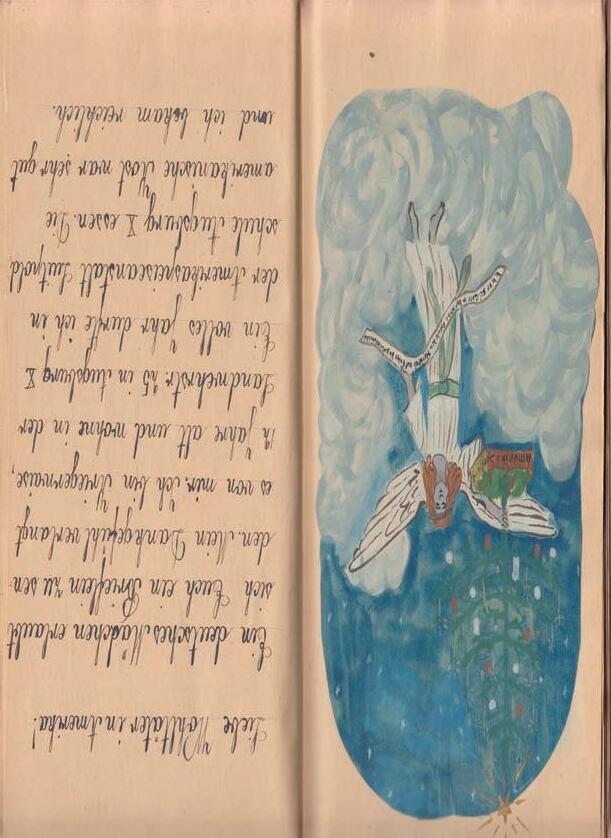 Liebe Wohltäter in Amerika!
Ein deutsches Mädchen erlaubt
sich Euch ein Brieflein zu sen-
den. Mein Dankgefühl verlangt
es von mir, ich bin Kriegerwaise,
12 Jahre alt und wohne in der
Landwehrstr. 25 in Augsburg X
Ein volles Jahr durfte ich in
der Amerikaspeiseanstalt Luitpold
schule Augsburg X essen. Die
amerikanische Kost war sehr gut
und ich bekam reichlich.